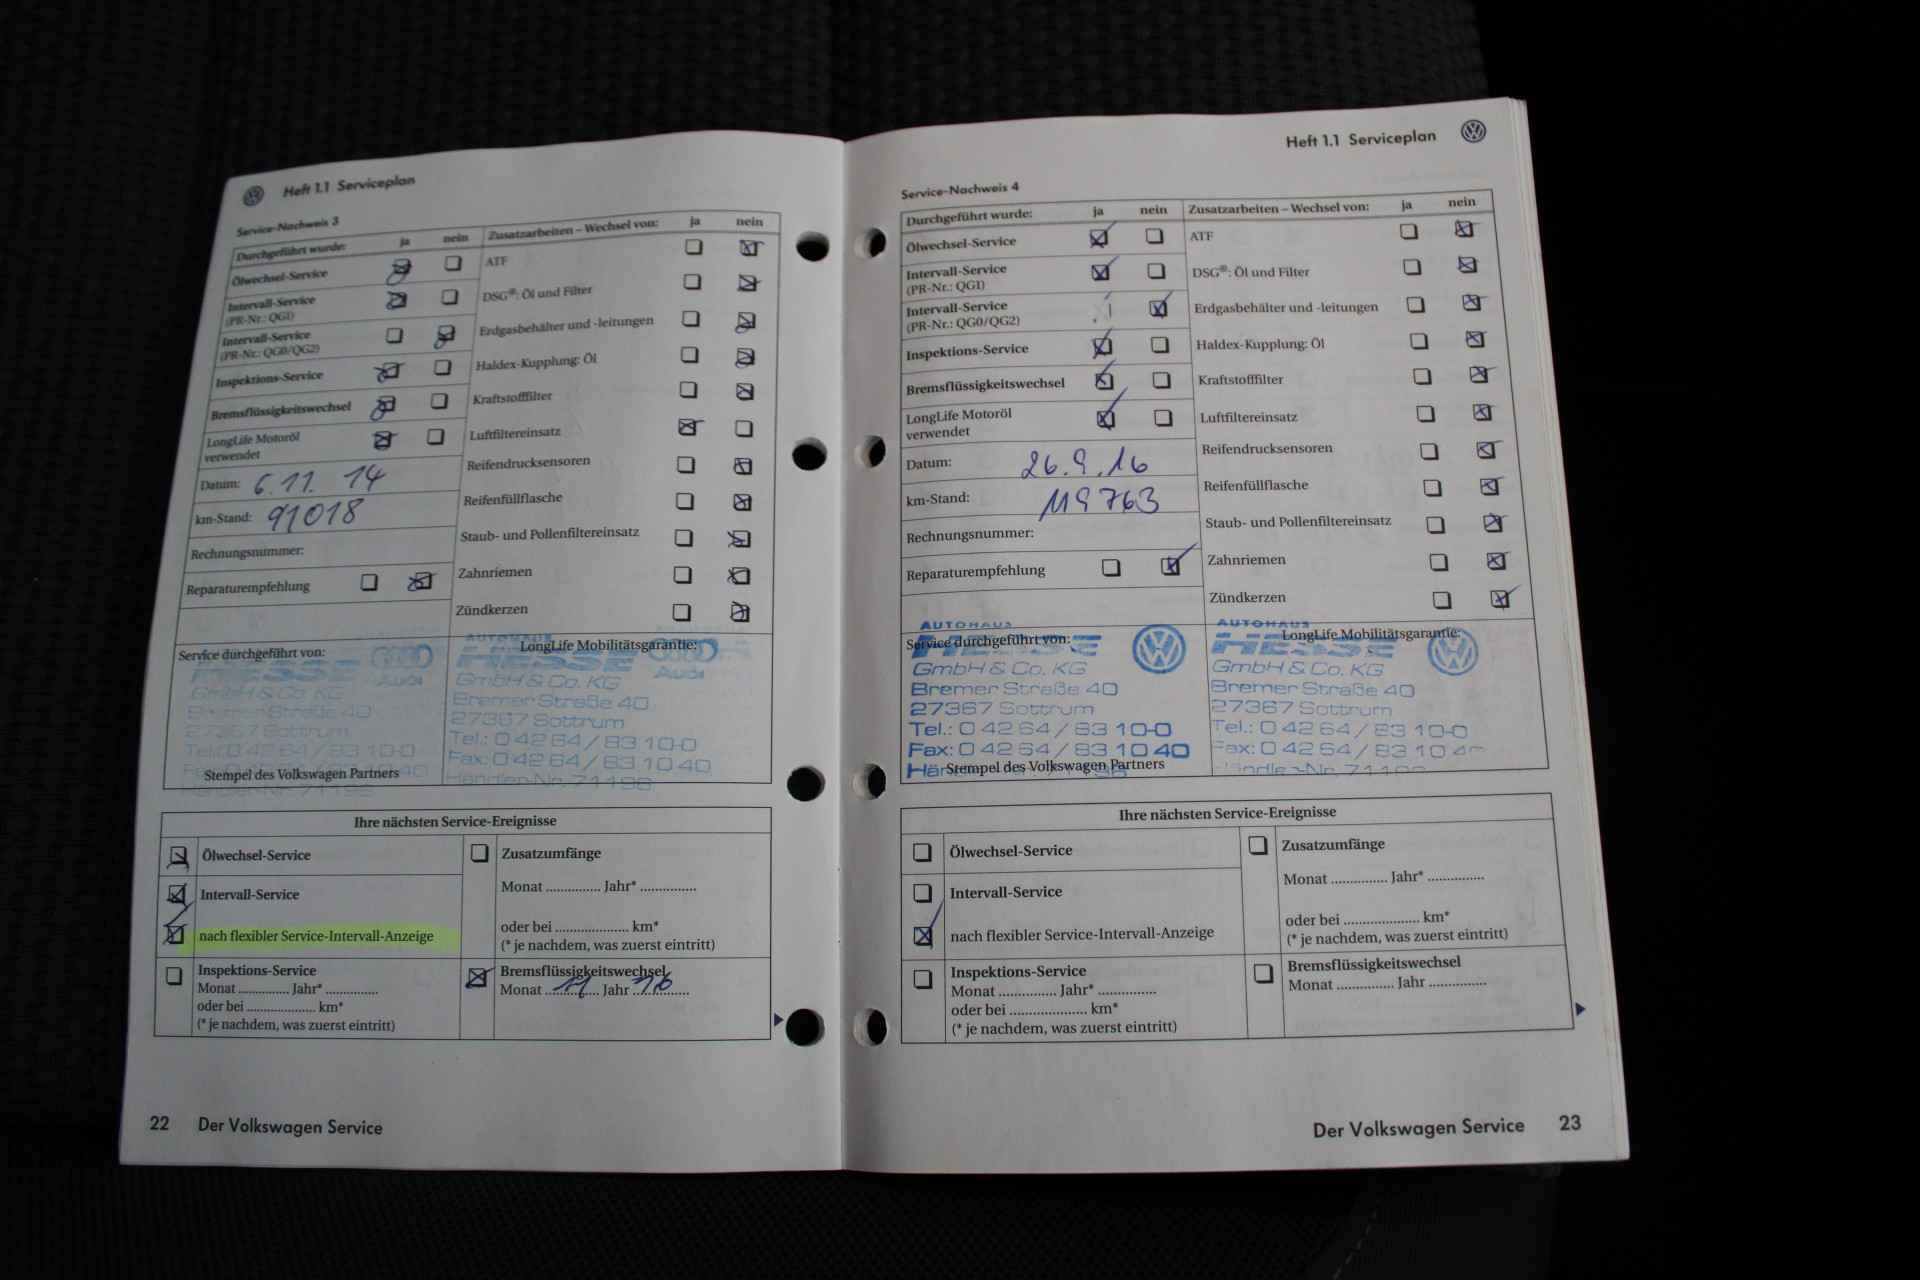 Heft 1.1 Serviceplan
Service-Nachweis 3
Durchgeführt wurde: ja nein
Ölwechsel-Service
Intervall-Service
(PR-Nr.: QG1)
Intervall-Service
(PR-Nr.: QG0/QG2)
Inspektions-Service
Bremsflüssigkeitswechsel
LongLife Motoröl
verwendet
Datum: 6.11. 14
km-Stand: 91018
Rechnungsnummer:
Reparaturempfehlung
Zusatzarbeiten – Wechsel von: ja nein
ATF
DSG®: Öl und Filter
Erdgasbehälter und -leitungen
Haldex-Kupplung: Öl
Kraftstofffilter
Luftfiltereinsatz
Reifendrucksensoren
Reifenfüllflasche
Staub- und Pollenfiltereinsatz
Zahnriemen
Zündkerzen
Service durchgeführt von:
HESSE
GmbH & Co. KG
Bremer Straße 40
27367 Sottrum
Tel.: 0 42 64 / 83 10-0
Fax: 0 42 64 / 83 10 40
Stempel des Volkswagen Partners
Händler-Nr. 71198
Audi
LongLife Mobilitätsgarantie:
AUTOHAUS
HESSE
GmbH & Co. KG
Bremer Straße 40
27367 Sottrum
Tel.: 0 42 64 / 83 10-0
Fax: 0 42 64 / 83 10 40
Händler-Nr. 71198
Audi
Ihre nächsten Service-Ereignisse
Ölwechsel-Service
Intervall-Service
nach flexibler Service-Intervall-Anzeige
Inspektions-Service
Monat .............. Jahr* ..............
oder bei .................... km*
(* je nachdem, was zuerst eintritt)
Zusatzumfänge
Monat .............. Jahr* ..............
oder bei .................... km*
(* je nachdem, was zuerst eintritt)
Bremsflüssigkeitswechsel
Monat 11 Jahr 16
22 Der Volkswagen Service
Heft 1.1 Serviceplan
Service-Nachweis 4
Durchgeführt wurde: ja nein
Ölwechsel-Service
Intervall-Service
(PR-Nr.: QG1)
Intervall-Service
(PR-Nr.: QG0/QG2)
Inspektions-Service
Bremsflüssigkeitswechsel
LongLife Motoröl
verwendet
Datum: 26.9.16
km-Stand: 119763
Rechnungsnummer:
Reparaturempfehlung
Zusatzarbeiten – Wechsel von: ja nein
ATF
DSG®: Öl und Filter
Erdgasbehälter und -leitungen
Haldex-Kupplung: Öl
Kraftstofffilter
Luftfiltereinsatz
Reifendrucksensoren
Reifenfüllflasche
Staub- und Pollenfiltereinsatz
Zahnriemen
Zündkerzen
AUTOHAUS
Service durchgeführt von:
HESSE
GmbH & Co. KG
Bremer Straße 40
27367 Sottrum
Tel.: 0 42 64 / 83 10-0
Fax: 0 42 64 / 83 10 40
Stempel des Volkswagen Partners
AUTOHAUS
LongLife Mobilitätsgarantie:
HESSE
GmbH & Co. KG
Bremer Straße 40
27367 Sottrum
Tel.: 0 42 64 / 83 10-0
Fax: 0 42 64 / 83 10 40
Ihre nächsten Service-Ereignisse
Ölwechsel-Service
Intervall-Service
nach flexibler Service-Intervall-Anzeige
Inspektions-Service
Monat .............. Jahr* ..............
oder bei .................... km*
(* je nachdem, was zuerst eintritt)
Zusatzumfänge
Monat .............. Jahr* ..............
oder bei .................... km*
(* je nachdem, was zuerst eintritt)
Bremsflüssigkeitswechsel
Monat .............. Jahr ..............
Der Volkswagen Service 23